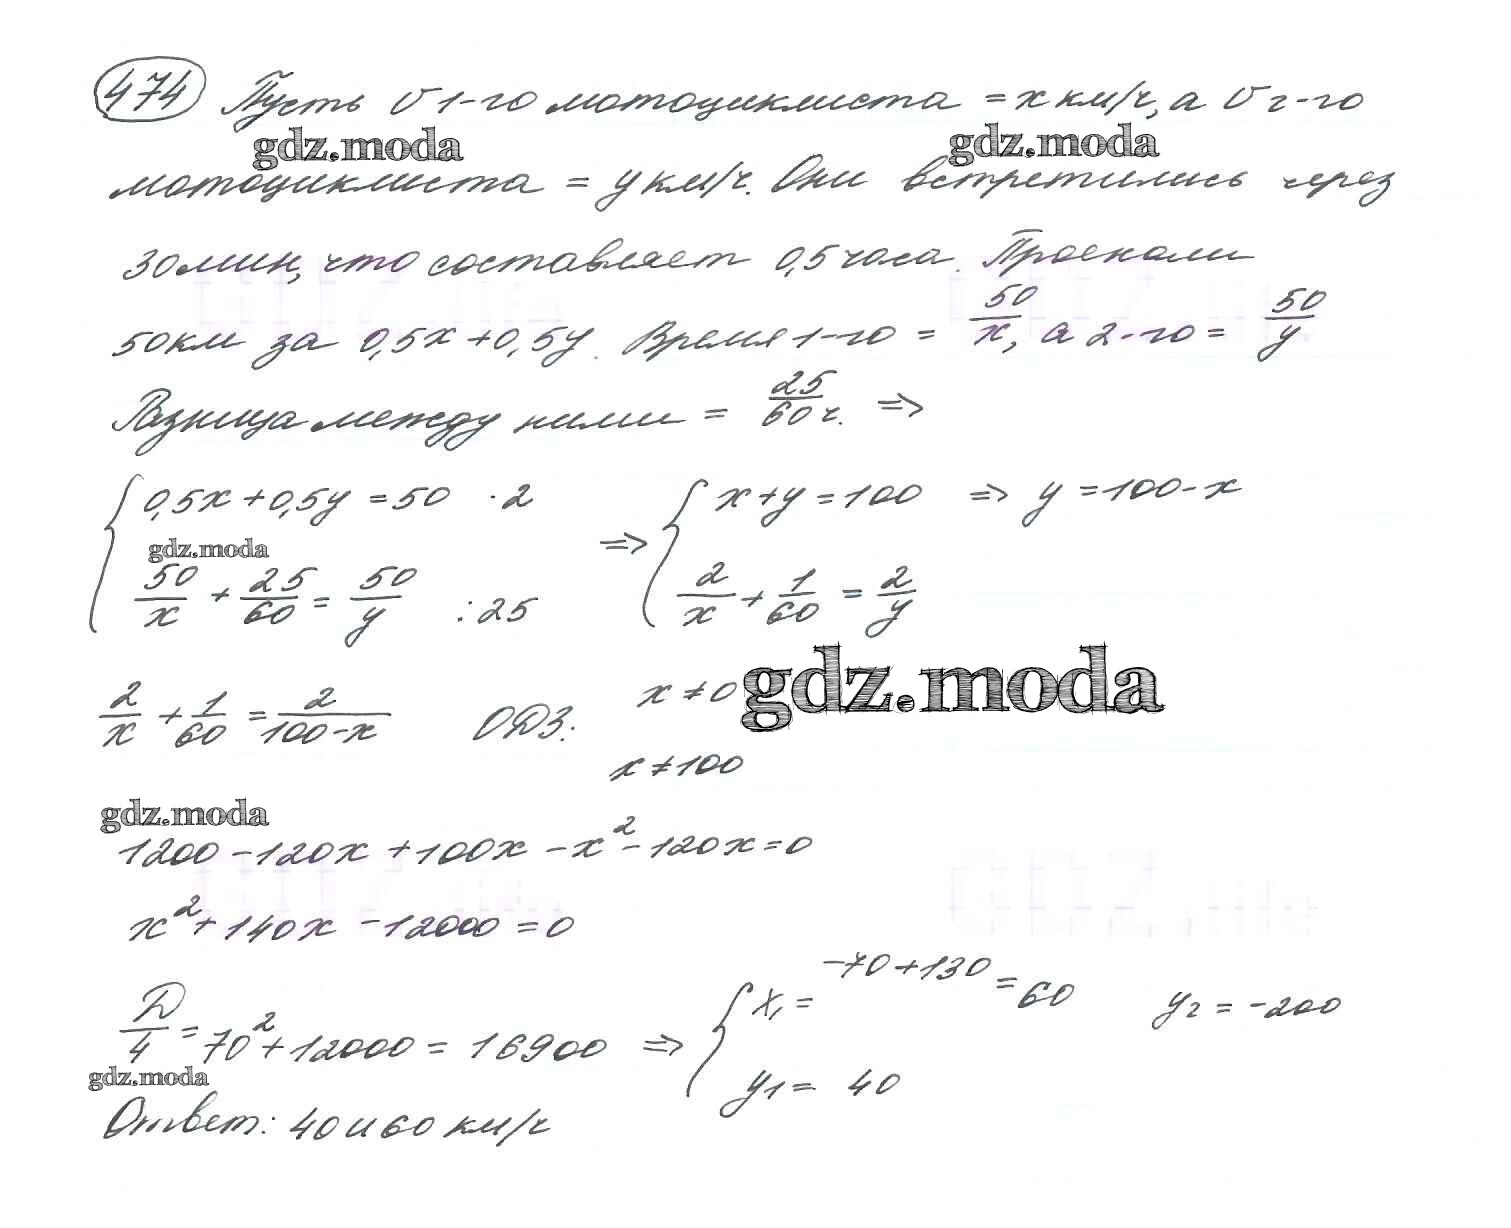 474 Пусть υ 1-го мотоциклиста = x км/ч, а υ 2-го
gdz.moda gdz.moda
мотоциклиста = y км/ч. Они встретились через
30 мин, что составляет 0,5 часа. Проехали
50 км за 0,5x + 0,5y. Время 1-го = 50/x, а 2-го = 50/y
Разница между ними = 25/60 ч. =>
{ 0,5x + 0,5y = 50 · 2 => { x + y = 100 => y = 100 - x
gdz.moda
50/x + 25/60 = 50/y : 25 2/x + 1/60 = 2/y
gdz.moda
2/x + 1/60 = 2/(100-x) ОДЗ: x ≠ 0
x ≠ 100
gdz.moda
1200 - 120x + 100x - x² - 120x = 0
x² + 140x - 12000 = 0
Д/4 = 70² + 12000 = 16900 => { x₁ = -70+130 = 60 y₂ = -200
y₁ = 40
gdz.moda
Ответ: 40 и 60 км/ч